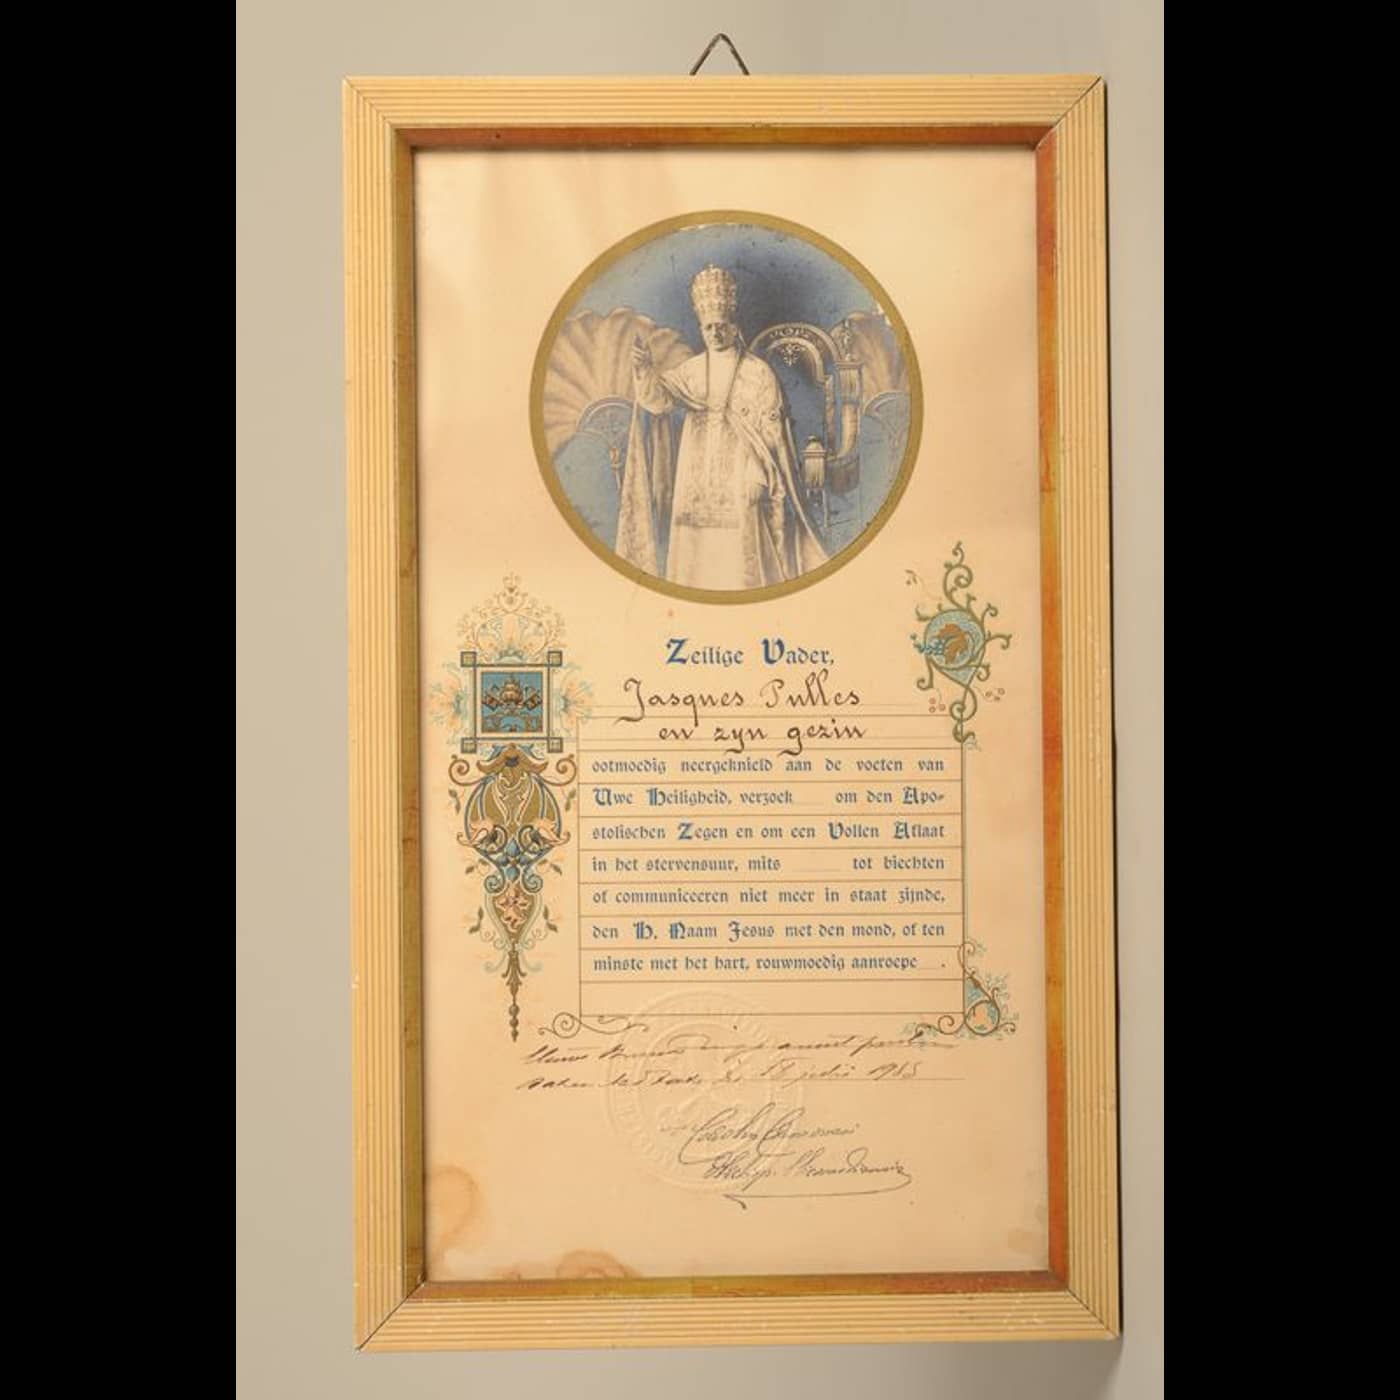 Heilige Vader,
Jasques Pulles
en zyn gezin
ootmoedig neergeknield aan de voeten van
Uwe Heiligheid, verzoek om den Apo-
stolischen Zegen en om een Vollen Aflaat
in het stervensuur, mits tot biechten
of communiceeren niet meer in staat zijnde,
den H. Naam Jesus met den mond, of ten
minste met het hart, rouwmoedig aanroepe .